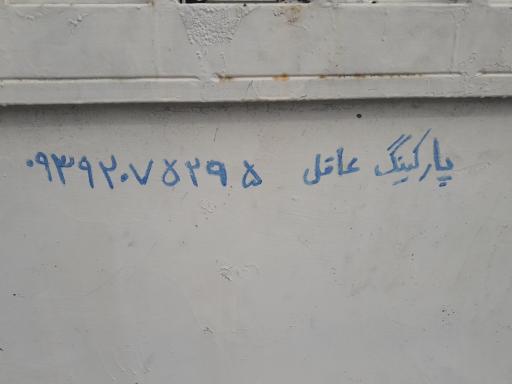 پارکینگ عاقل ۰۹۳۹۲۰۷۵۲۹۵